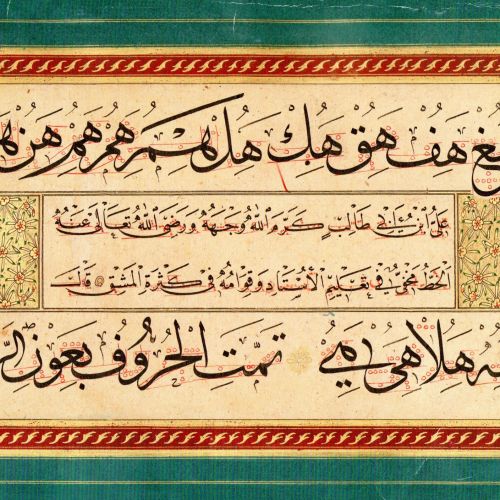 هف هق هك هل هم هم هم هن
عَلِي ابْنُ اَبِي طَالِبٍ كَرَّمَ اللهُ وَجْهَهُ وَرَضِيَ اللهُ تَعَالَى عَنْهُ
الْخَطُّ مَخْفِيٌّ فِي تَعْلِيمِ الْاُسْتَادِ وَقِوَامُهُ فِي كَثْرَةِ الْمَشْقِ قَالَ
هلا هي هي تمت الحروف بعون